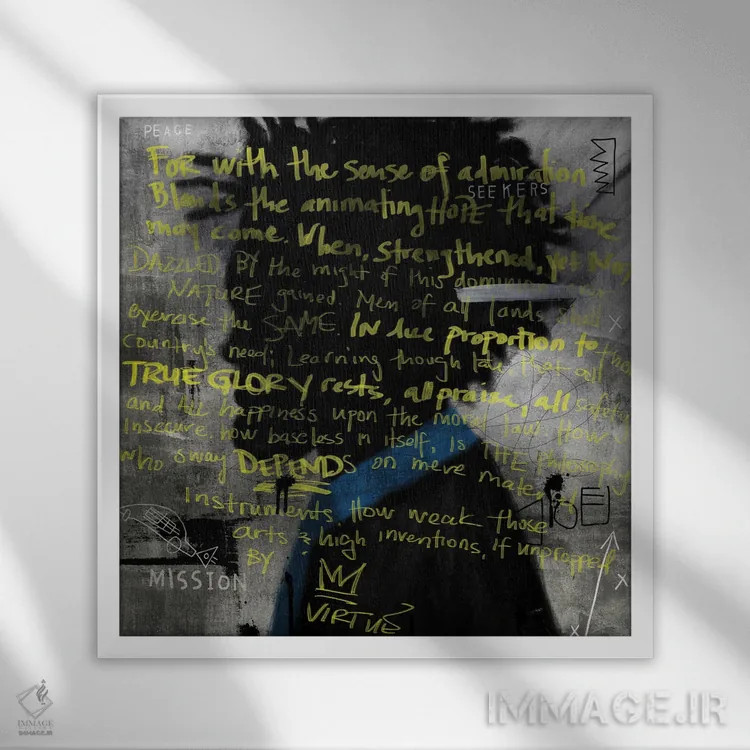 PEACE
FOR with the sense of admiration
SEEKERS
Blends the animating HOPE that time
may come. When, strengthened, yet Not
DAZZLED BY the might of this dominion
NATURE gained. Men of all lands shall
exercise the SAME IN due proportion to their
Country's need; Learning though late that all
TRUE GLORY rests, all praise, all safety
and All happiness upon the moral law How
Insecure, how baseless in itself, is THE Philosophy
who sway DEPENDS on mere material
Instruments. How weak those
arts & high inventions, if unpropped
BY
MISSION
VIRTUE
IMMAGE
IMMAGE.IR
IMMAGE.IR